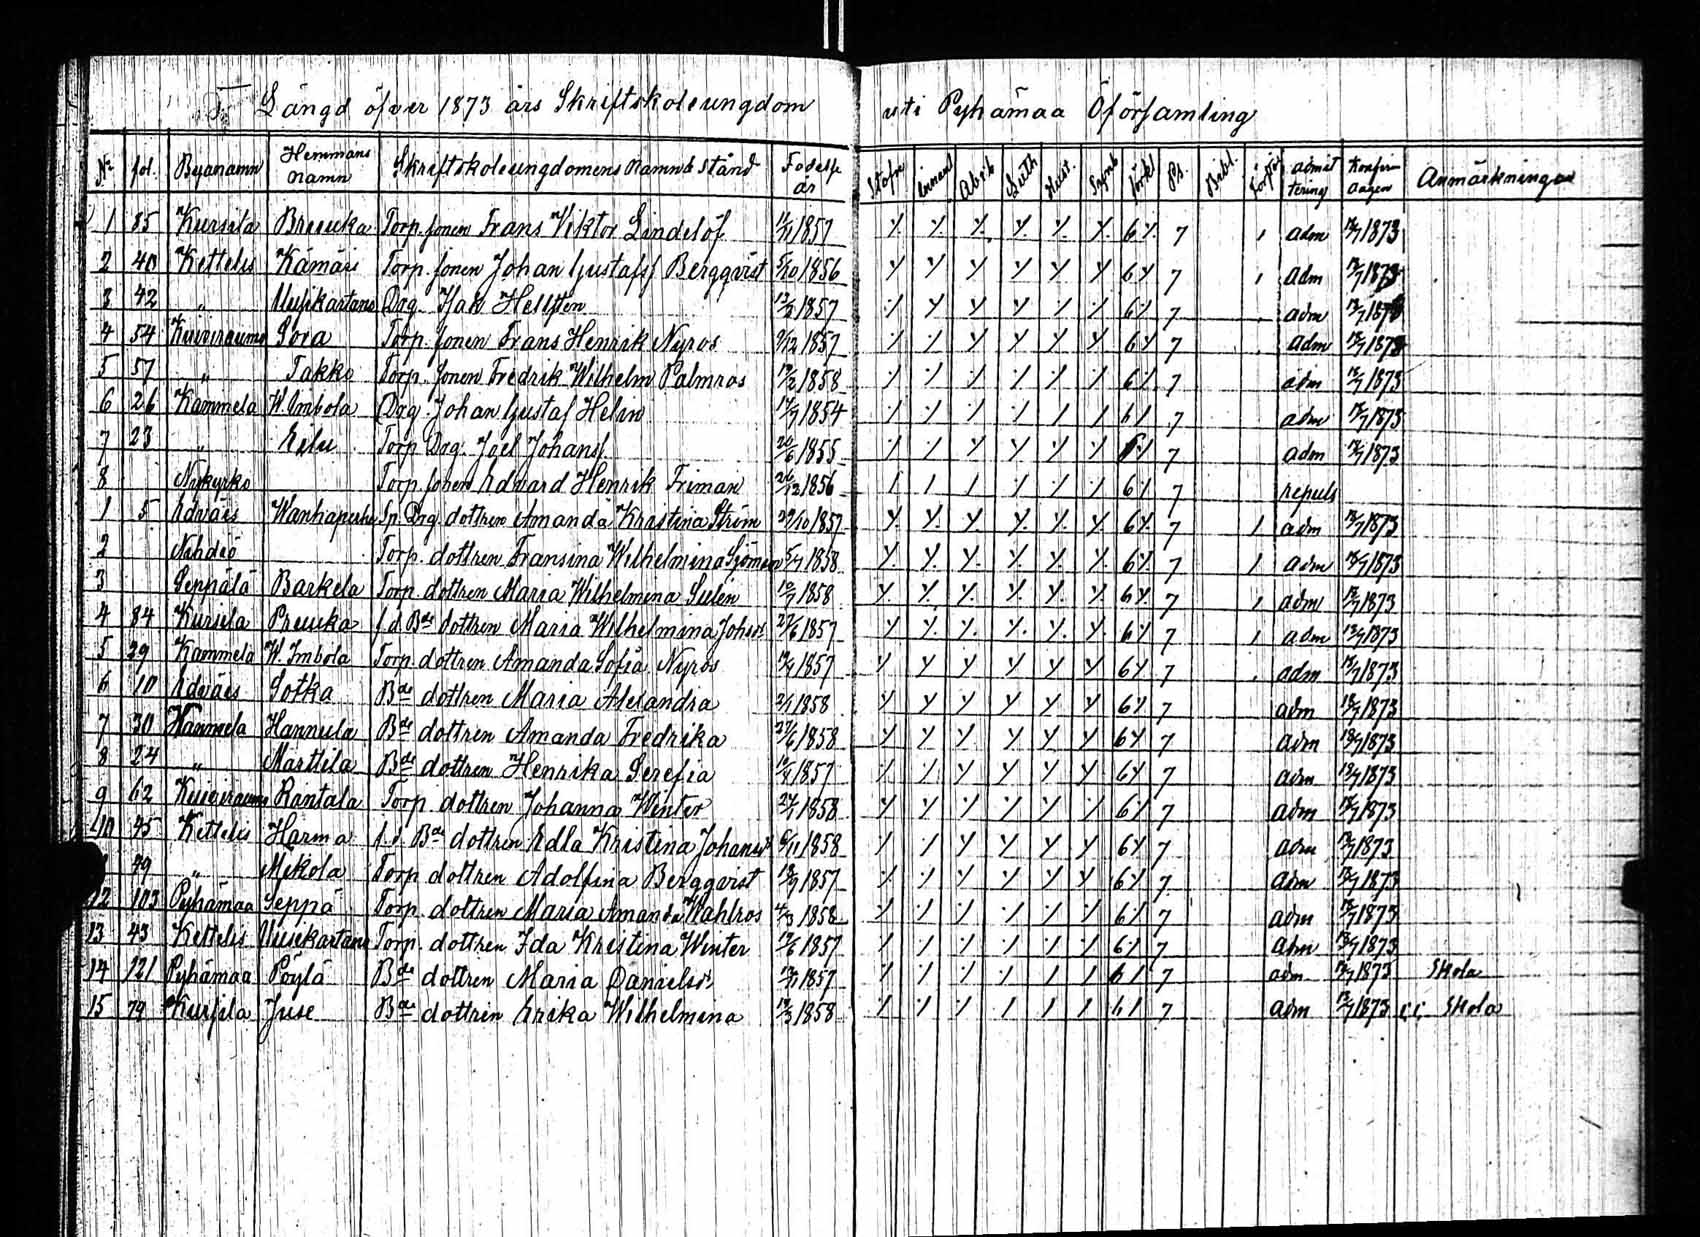 Längd öfver 1873 års Skriftskoleungdom uti Pyhämaa Öförsamling
No fol. Byanamn Hemmans namn Skriftskoleungdomens Namn & stånd Födelse år Stafn innant Ab.c.b Luth Hust. Symb förkl Ps. Bibl. Förhör admit tering Konfir dagen Anmärkningar
1 85 Kursila Breuuka Torp. sonen Frans Viktor Lindelöf 1857 6 7 adm 1873
2 40 Kettelis Kämäri Torp. sonen Johan Gustafss Bergqvist 5/10 1856 6 7 adm 1873
3 42 " Uusikartano Drg. Isak Hellsten 1857 6 7 adm
4 54 Kuiviraumo Sora Torp. sonen Frans Henrik Nyros 9/12 1857 6 7 adm 1873
5 57 " Takko Torp. sonen Fredrik Wilhelm Palmros 1858 6 7 adm 1873
6 26 Kammela W. Imbola Drg. Johan Gustaf Helin 1854 6 7 adm 1873
7 23 " Eilu Torp. Drg. Joel Johanss. 1855 7 adm 1873
8 Nykyrko Torp. sonen Edvard Henrik Friman 1856 6 7 repuls
1 5 Edväis Wanhaperhe Sp. Drg. dottren Amanda Kristina Ström 29/10 1857 6 7 adm 1873
2 Nihdiö Torp. dottren Fransina Wilhelmina Sjöman 5/7 1858 6 7 adm 1873
3 Seppälä Barkela Torp. dottren Maria Wilhelmina Sulén 1858 6 7 adm 1873
4 84 Kursila Preuuka f.d. Bde dottren Maria Wilhelmina Johsdr 1857 6 7 adm 1873
5 29 Kammela W. Imbola Torp. dottren Amanda Sofia Nyros 1857 6 7 adm 1873
6 10 Edväis Sotka Bde dottren Maria Alexandra 2/1 1858 6 7 adm 1873
7 30 Kammela Hannula Bde dottren Amanda Fredrika 27/6 1858 6 7 adm 1873
8 24 " Marttila Bde dottren Henrika Serefia 1857 6 7 adm 1873
9 62 Kuiviraumo Rantala Torp. dottren Johanna Winter 1858 6 7 adm 1873
10 45 Kettelis Harma f.d. Bde dottren Edla Kristina Johansdr 6/11 1858 6 7 adm 1873
49 " Mikola Torp. dottren Adolfina Bergqvist 1857 6 7 adm 1873
12 103 Pyhämaa Seppä Torp. dottren Maria Amanda Wahlros 4/3 1858 6 7 adm 1873
13 43 Kettelis Uusikartano Torp. dottren Ida Kristina Winter 1857 6 7 adm 1873
14 121 Pyhämaa Pöylä Bde dottren Maria Danielsdr 1857 6 7 adm 1873 Skola
15 79 Kursila Juse Bde dottren Erika Wilhelmina 1858 6 7 adm 1873 i, i, Skola